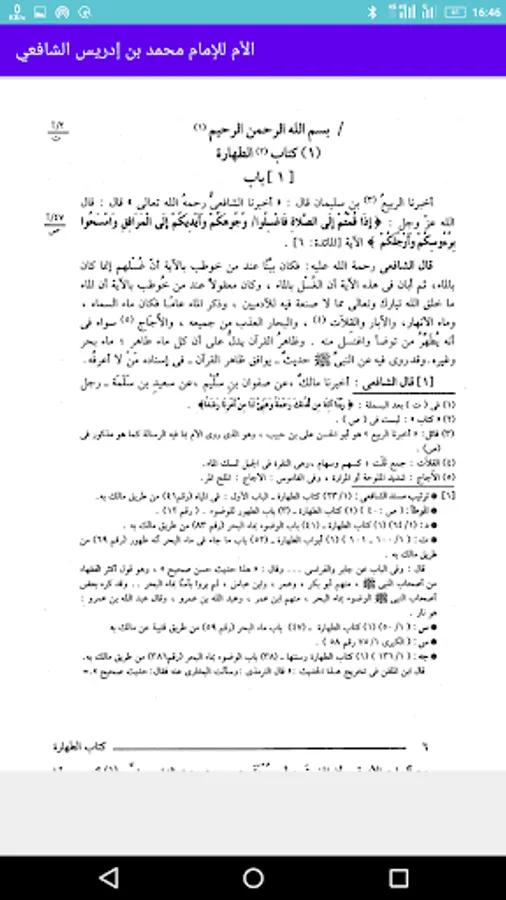 0 KB/s 4G 16:46
الأم للإمام محمد بن إدريس الشافعي
٢/أ
ت
/ بسم الله الرحمن الرحيم (١)
(١) كتاب (٢) الطهارة
[ ١ ] باب
أخبرنا الربيعُ (٣) بن سليمان قال : « أخبرنا الشافعيُّ رحمهُ الله تعالى » قال : قال
٤٧/أ
ص
الله عزّ وجل : ﴿ إِذَا قُمْتُمْ إِلَى الصَّلَاةِ فَاغْسِلُوا/ وُجُوهَكُمْ وَأَيْدِيَكُمْ إِلَى الْمَرَافِقِ وَامْسَحُوا
بِرُءُوسِكُمْ وَأَرْجُلَكُمْ ﴾ الآية [المائدة: ٦] .
قال الشافعى رحمة الله عليه: فكان بيّنًا عند من خوطب بالآية أنّ غُسْلهم إنما كان
بالماء، ثم أبان فى هذه الآية أن الغُسْل بالماء ، وكان معقولاً عند من خُوطب بالآية أن الماء
ما خلق الله تبارك وتعالى مما لا صنعة فيه للآدميين ، وذكر الماء عامّا فكان ماء السماء ،
وماء الأنهار، والآبار والقلات (٤) ، والبحار العذب من جميعه ، والأُجَاجِ (٥) سواء فى
أنه يُطَهِّرُ من توضأ واغتسل منه . وظاهرُ القرآن يدلّ على أن كل ماء طاهر ؛ ماء بحر
وغيره. وقد روى فيه عن النبىّ ﷺ حديثٌ يوافق ظاهر القرآن ـ فى إسناده مَنْ لا أعرفُه.
[١] قال الشافعى : أخبرنا مالكٌ ،عن صفوان بنِ سُلَيْم ،عن سعيدِ بنِ سَلَمَةَ ـ رجل
(١) فى ( ت ) بعد البسملة : ﴿ رَبَّنَا آتِنَا مِن لَّدُنكَ رَحْمَةً وَهَيِّئْ لَنَا مِنْ أَمْرِنَا رَشَدًا ﴾ .
(٢) « كتاب » : ليست فى ( ص ) .
(٣) قائل: « أخبرنا الربيع » هو أبو الحسن على بن حبيب ، وهو الذى روى الأم بما فيه الرسالة كما هو مذكور فى
(ص) .
(٤) القلات : جمع قَلْت ؛ كسهم وسهام ،وهى النقرة فى الجبل تمسك الماء.
(٥) الأجاج : الشديد الملوحة أو المرارة ، وفى القاموس : الأجاج : الملح المر.
[١] ● ترتيب مسند الشافعى : (٢٣/١) كتاب الطهارة ـ الباب الأول : فى المياه (رقم٤٢) عن طريق مالك به.
● الموطأ : ( ص :٤٠ ) (١) كتاب الطهارة ـ (٣) باب الطهور للوضوء . ( رقم ١٢ ) .
● د : (٦٤/١) (١) كتاب الطهارة ـ (٤١) باب الوضوء بماء البحر (رقم ٨٣) من طريق مالك به .
● ت : ( ١٠٠/١ ـ ١٠١ ) (١) أبواب الطهارة ـ (٥٢) باب ما جاء فى ماء البحر أنه طهور (رقم ٦٩) من
طريق مالك به .
قال : وفى الباب عن جابر والفراسى ... وقال : « هذا حديث حسن صحيح » ، وهو قول أكثر الفقهاء
من أصحاب النبى ﷺ ، منهم أبو بكر ، وعمر ، وابن عباس ، لم يروا بأسًا بماء البحر .. وقد كره بعض
أصحاب النبى ﷺ الوضوء بماء البحر ، منهم ابن عمر ، وعبد الله بن عمرو ، وقال عبد الله بن عمرو :
هو نار .
● س : (٥٠/١) (١) كتاب الطهارة ـ (٤٧) باب ماء البحر (رقم ٥٩) من طريق قتيبة عن مالك به
● س : ( الكبرى ٧٥/١ رقم ٥٨ ) .
● جه : ( ١٣٦/١ ) (١) كتاب الطهارة وسننها ـ (٣٨) باب الوضوء بماء البحر (رقم٣٨٦) من طريق مالك به.
قال ابن الملقن فى تخريج هذا الحديث :« قال الترمذى : وسألت البخارى عنه فقال: حديث صحيح »،=
٦ كتاب الطهارة